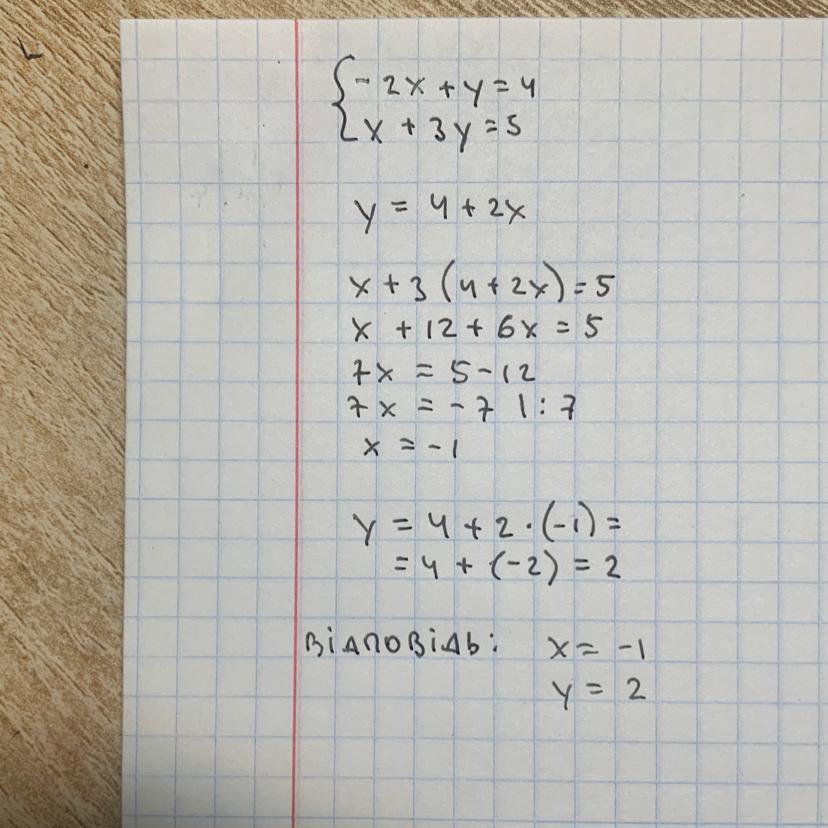 { -2x + y = 4
x + 3y = 5
y = 4 + 2x
x + 3 (4 + 2x) = 5
x + 12 + 6x = 5
7x = 5 - 12
7x = -7 | : 7
x = -1
y = 4 + 2 · (-1) =
= 4 + (-2) = 2
Відповідь: x = -1
y = 2